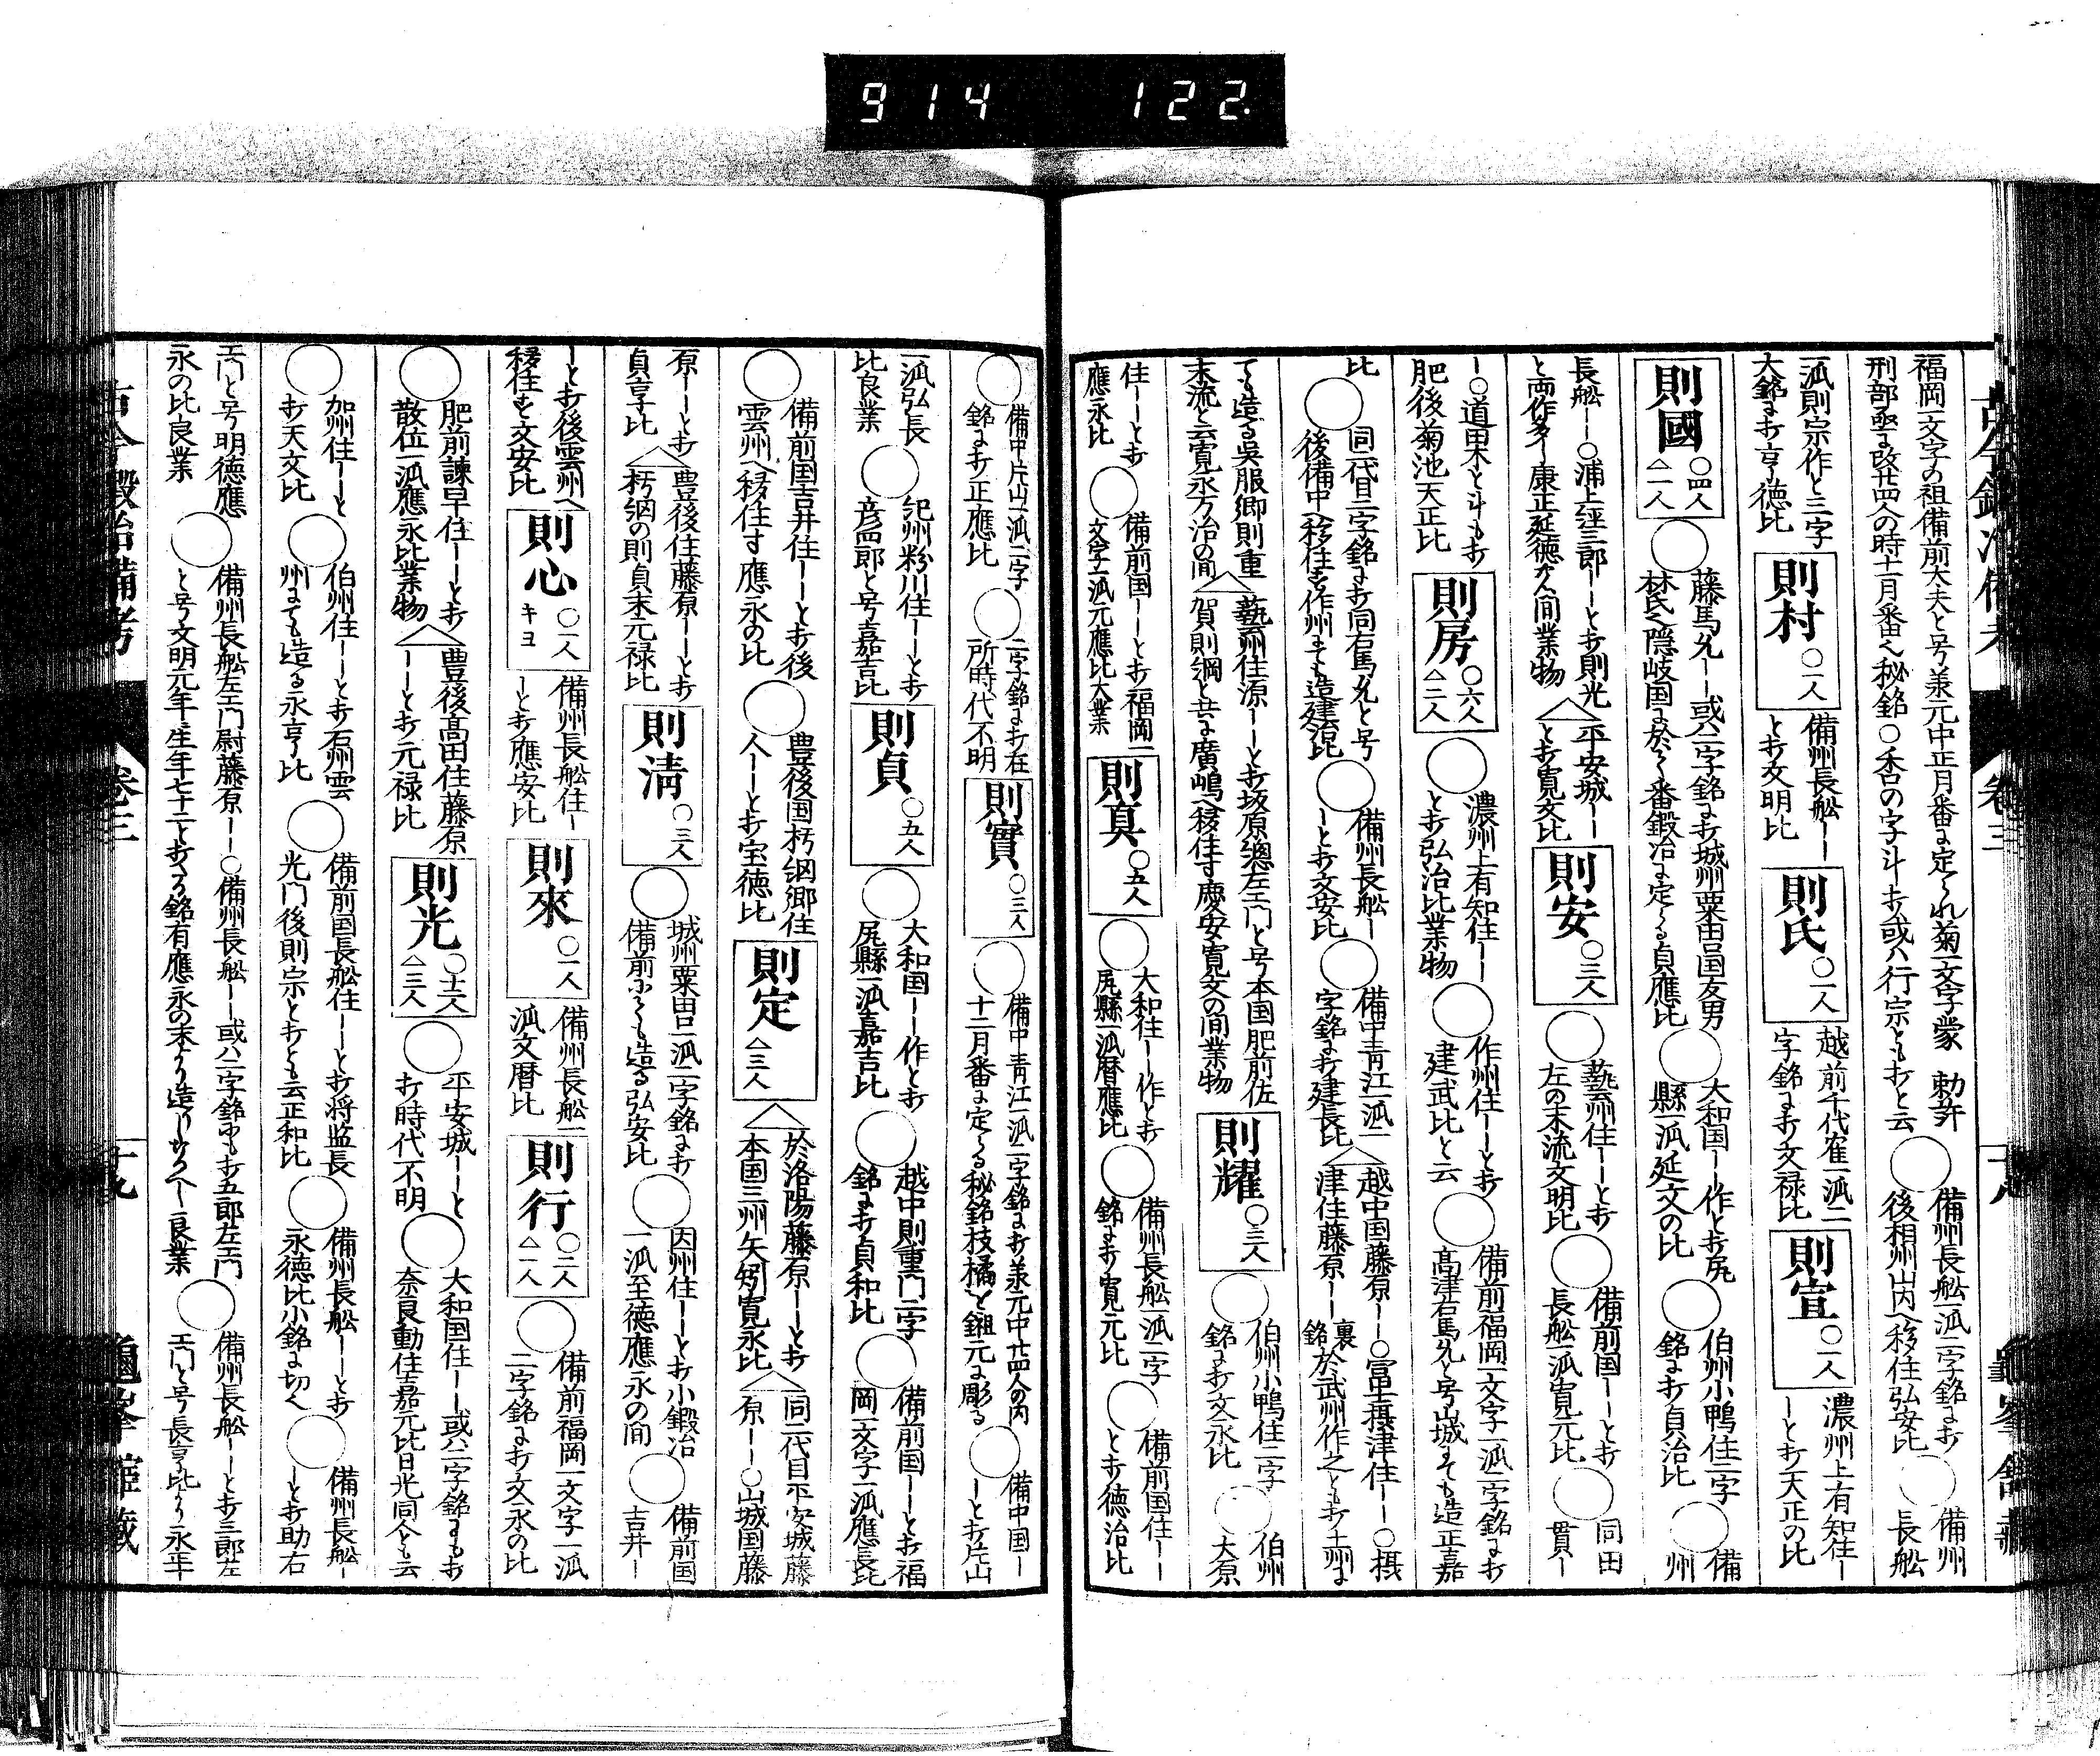 914 122
福岡一文字の祖備前大夫と号兼元中正月番に定られ菊一文字蒙 勅許
刑部丞に改廿四人の時十一月番也秘銘○杏の字斗打或ハ行宗とも打と云
○備州長舩一派二字銘に打
後相州山内へ移住弘安比
○備州
長舩
一派則宗作と三字
大銘に打享徳比
則村 ○一人
備州長舩一
と打文明比
則氏 ○一人
越前千代在一派二
字銘に打文禄比
則宣 ○一人
濃州上有知住一
一と打天正の比
則國 ○四人 △一人
○藤馬允一或ハ二字銘に打城州粟田口国友男
隠岐国に於て番鍛冶に定る貞應比
○大和国一作と打尻
縣一派延文の比
○伯州小鴨住二字
銘に打貞治比
○備
州
長舩一○浦上經三郎一と打則光
と両作多一康正延徳 間業物
△平安城一一
と打寛文比
則安 ○三人
○藝州住一と打
左の末流文明比
○備前国一と打
長舩一派寛元比
○同田
貫一
一○道田木と斗も打
肥後菊池天正比
則房 ○六人 △二人
○濃州上有知住一
と打弘治比業物
○作州住一と打
建武比と云
○備前福岡一文字一派二字銘に打
髙津右馬允と号山城にても造正嘉
比
○同二代目二字銘に打同右馬允と号
後備中へ移住を作州にも造建治比
○備州長舩一
一と打文安比
○備中青江一派二
字銘に打建長比
△越中国藤原一○富田摂津住一○摂
津住藤原一 裏銘 於武州作之とも打土州に
ても造る呉服郷則重
末流と云寛永万治の間
△藝州住源一と打坂原總左エ門と号本国肥前佐
賀則綱と共に廣嶋へ移住す慶安寛文の間業物
則耀 ○三人
○伯州小鴨住二字
銘に打文永比
○伯州
大原
住一と打
應永比
○備前国一と打福岡一
文字一派元應比大業
則真 ○五人
○大和住一作と打
尻縣一派暦應比
○備州長舩一派二字
銘に打寛元比
○備前国住一
と打徳治比
○備中片山一派二字
銘に打正應比
○二字銘に打在
所時代不明
則實 ○三人
○備中青江一派二字銘に打兼元中廿四人の内
十二月番に定る秘銘枝橘を鎺元に彫る
○備中国一
一と打片山
一派弘長
比良業
○紀州粉川住一と打
彦四郎と号嘉吉比
則貞 ○五人
○大和国一作と打
尻縣一派嘉吉比
○越中則重門二字
銘に打貞和比
○備前国一と打福
岡一文字一派應長比
○備前国吉井住一と打後
雲州へ移住す應永の比
○豊後国朽網郷住
人一と打宝徳比
則定 △三人
△於洛陽藤原一と打
本国三州矢矧寛永比
△同二代目平安城藤
原一○山城国藤
原一と打
貞享比
△豊後住藤原一と打
朽網の則貞末元禄比
則清 ○三人
○城州粟田口一派二字銘に打
備前にても造る弘安比
○因州住一と打小鍛冶
一派至徳應永の間
○備前国
吉井一
一と打後雲州へ
移住を文安比
則心 キヨ ○一人
備州長舩住一
一と打應安比
則來 ○一人
備州長舩一
派文暦比
則行 ○二人 △一人
○備前福岡一文字一派
二字銘に打文永の比
○肥前諫早住一と打
散位一派應永比業物
△豊後髙田住藤原
一一と打元禄比
則光 ○十二人 △三人
○平安城一と
打時代不明
○大和国住一或ハ二字銘にも打
奈良動住嘉元比日光同人とも云
○加州住一と
打天文比
○伯州住一と打石州雲
州にても造る永享比
○備前国長舩住一と打将監長
光門後則宗と打とも云正和比
○備州長舩一と打
永徳比小銘に切也
○備州長舩一
一と打助右
エ門と号明徳應
永の比良業
○備州長舩左エ門尉藤原一○備州長舩一或ハ二字銘にも打五郎左エ門
と号文明元年生年七十二と打たる銘有應永の末より造りたるべ一良業
○備州長舩一と打三郎左
エ門と号長享比り永正
古今鍛冶備考 巻三